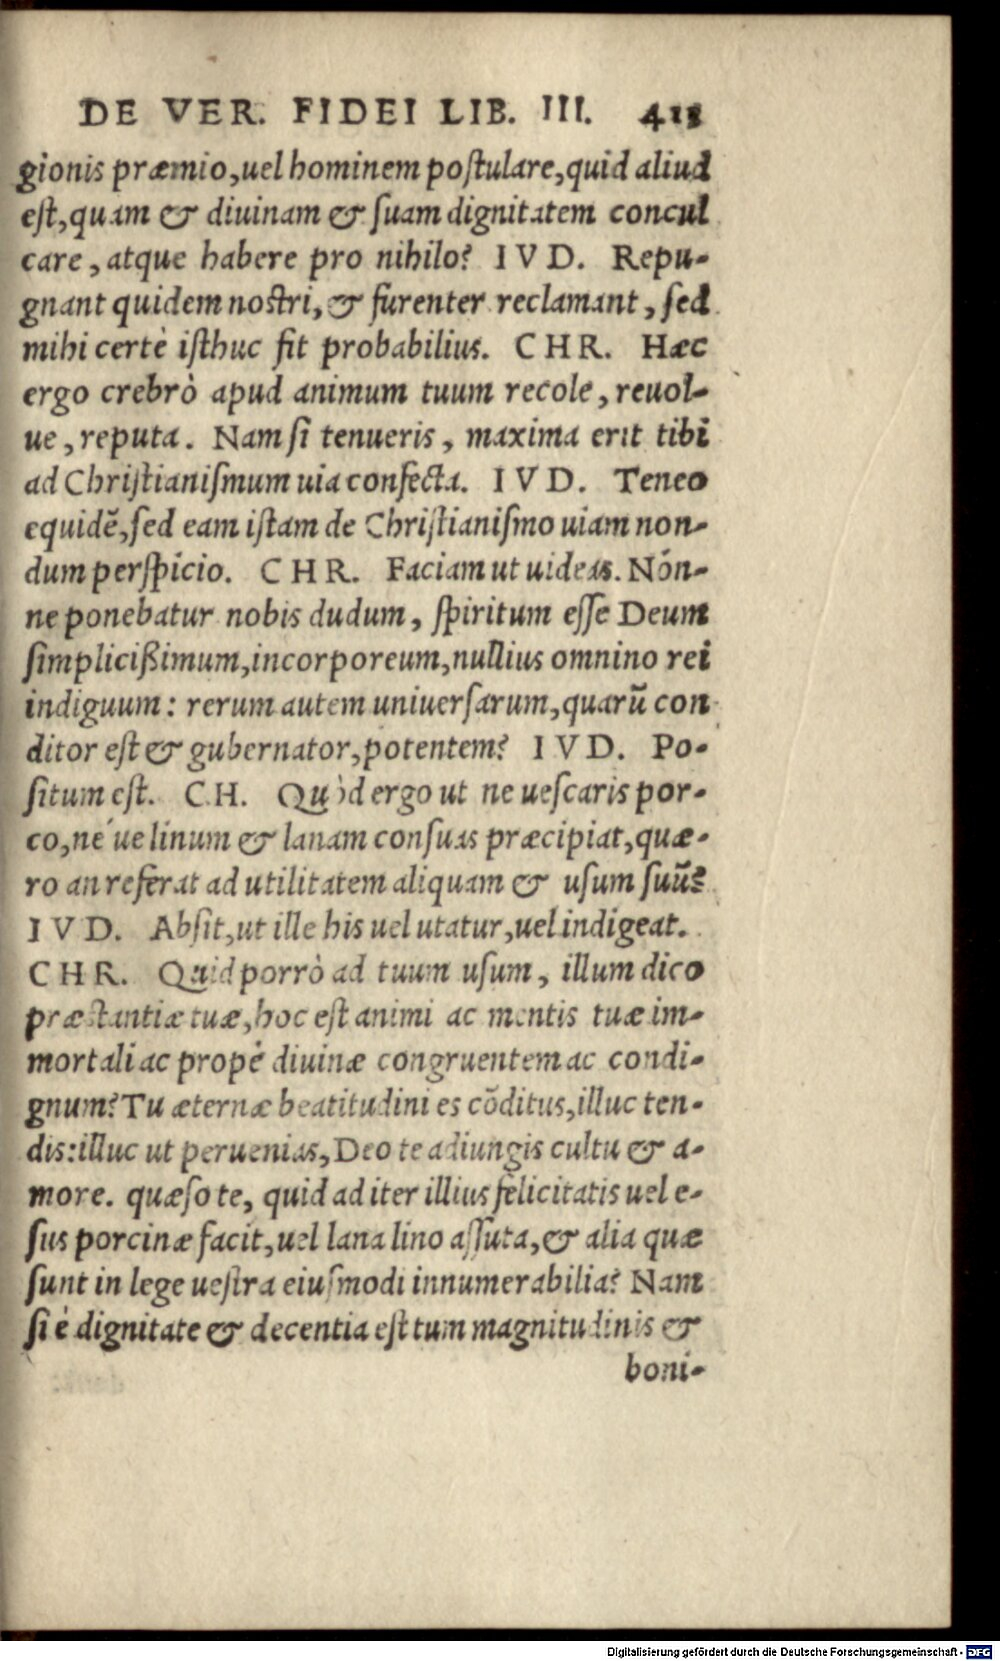 DE VER. FIDEI LIB. III. 413
gionis præmio, uel hominem poſtulare, quid aliud
eſt, quam & diuinam & ſuam dignitatem concul
care, atque habere pro nihilo? IVD. Repu-
gnant quidem noſtri, & furenter reclamant, ſed
mihi certè iſthuc fit probabilius. CHR. Hæc
ergo crebrò apud animum tuum recole, reuol-
ue, reputa. Nam ſi tenueris, maxima erit tibi
ad Chriſtianiſmum uia confecta. IVD. Teneo
equidẽ, ſed eam iſtam de Chriſtianiſmo uiam non-
dum perſpicio. CHR. Faciam ut uideas. Nón-
ne ponebatur nobis dudum, ſpiritum eſſe Deum
ſimplicißimum, incorporeum, nullius omnino rei
indiguum: rerum autem uniuerſarum, quarũ con
ditor eſt & gubernator, potentem? IVD. Po-
ſitum eſt. CH. Quòd ergo ut ne ueſcaris por-
co, né ue linum & lanam conſuas præcipiat, quæ-
ro an referat ad utilitatem aliquam & uſum ſuũ?
IVD. Abſit, ut ille his uel utatur, uel indigeat.
CHR. Quid porrò ad tuum uſum, illum dico
præſtantiæ tuæ, hoc eſt animi ac mentis tuæ im-
mortali ac propè diuinæ congruentem ac condi-
gnum? Tu æternæ beatitudini es cõditus, illuc ten-
dis: illuc ut peruenias, Deo te adiungis cultu & a-
more. quæſo te, quid ad iter illius felicitatis uel e-
ſus porcinæ facit, uel lana lino aſſuta, & alia quæ
ſunt in lege ueſtra eiuſmodi innumerabilia? Nam
ſi è dignitate & decentia eſt tum magnitudinis &
boni-
Digitalisierung gefördert durch die Deutsche Forschungsgemeinschaft - DFG